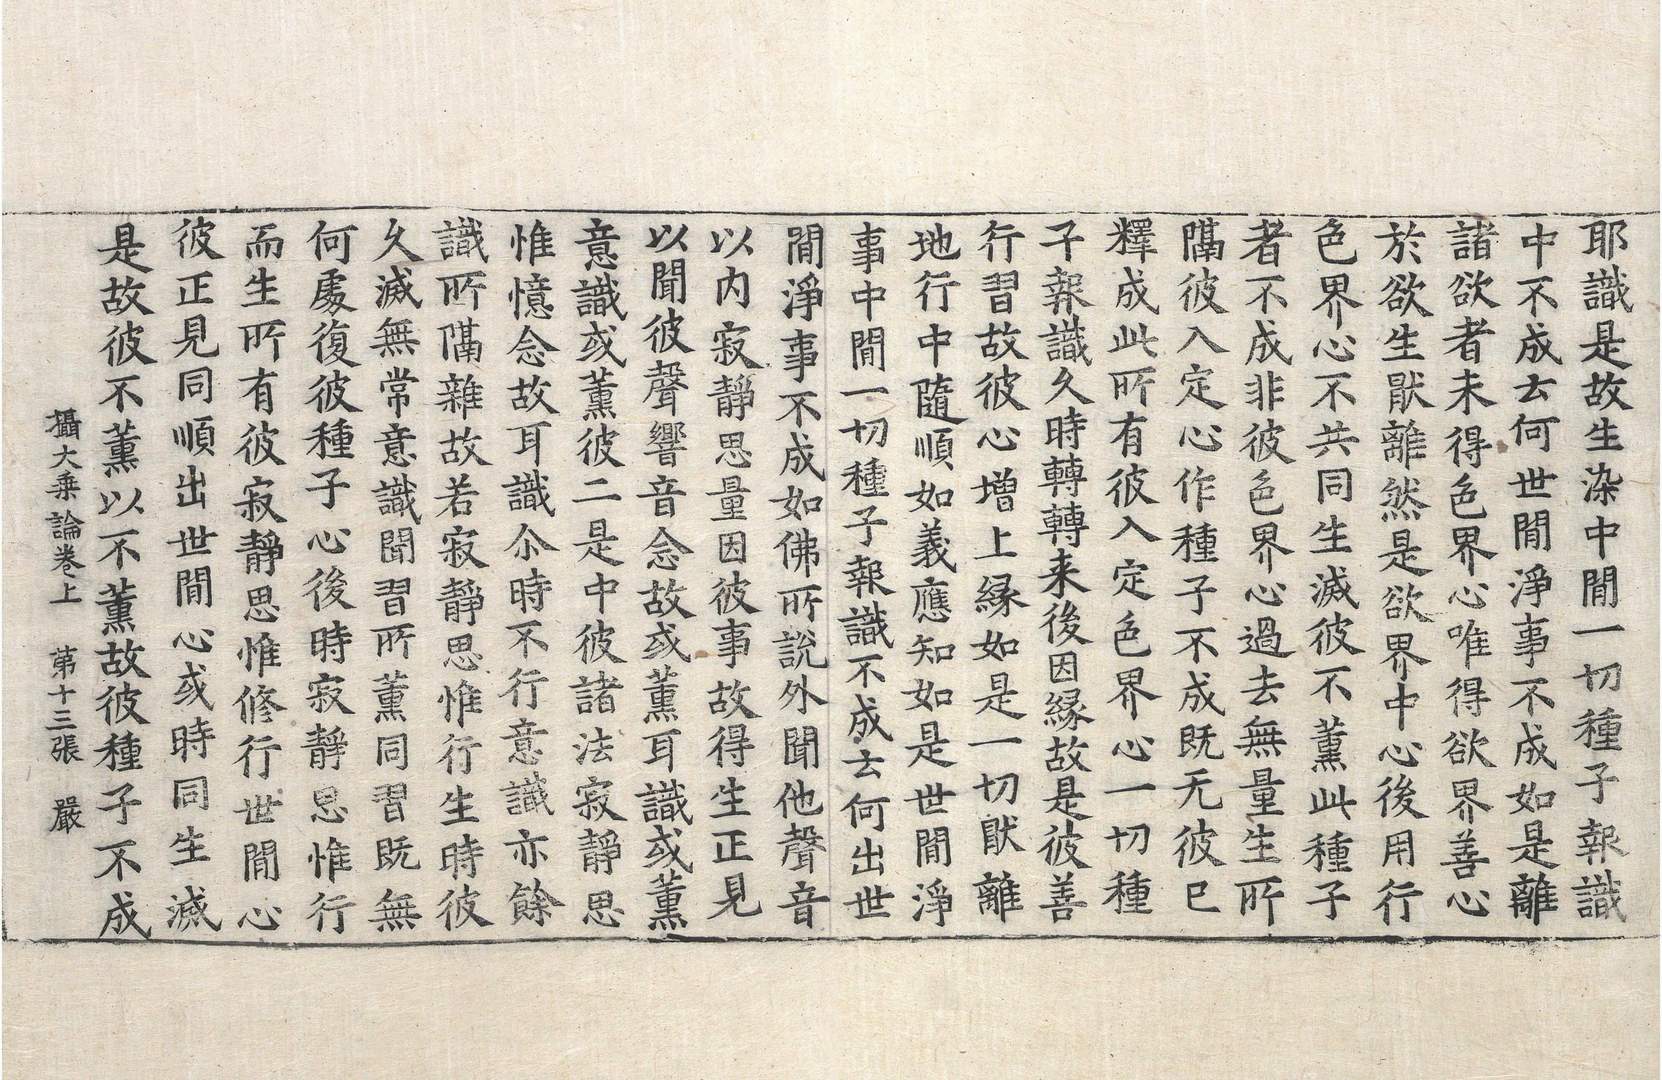 耶識是故生染中間一切種子報識
中不成去何世間淨事不成如是離
諸欲者未得色界心唯得欲界善心
於欲生猒離然是欲界中心後用行
色界心不共同生滅彼不薰此種子
者不成非彼色界心過去無量生所
隔彼入定心作種子不成既无彼巳
釋成此所有彼入定色界心一切種
子報識久時轉轉来後因縁故是彼善
行習故彼心增上縁如是一切猒離
地行中隨順如義應知如是世間淨
事中間一切種子報識不成去何出世
間淨事不成如佛所說外聞他聲音
以内寂靜思量因彼事故得生正見
以聞彼聲響音念故或薰耳識或薰
意識或薰彼二是中彼諸法寂靜思
惟憶念故耳識尒時不行意識亦餘
識所隔雜故若寂靜思惟行生時彼
久滅無常意識聞習所薰同習既無
何處復彼種子心後時寂靜思惟行
而生所有彼寂靜思惟修行世間心
彼正見同順出世間心或時同生滅
是故彼不薰以不薰故彼種子不成
攝大乗論卷上　第十三張　嚴